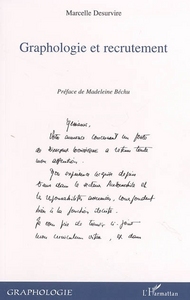 Marcelle Desurvire
Graphologie et recrutement
Préface de Madeleine Béchu
Messieurs,
Votre annonce concernant un poste
de Manager économique a retenu toute
mon attention.
Mon expérience acquise depuis
dans le secteur
et la responsabilité associée, correspondent
bien à la fonction décrite.
Je vous prie de trouver ci-joint
mon curriculum vitae, et dans
GRAPHOLOGIE
L'Harmattan